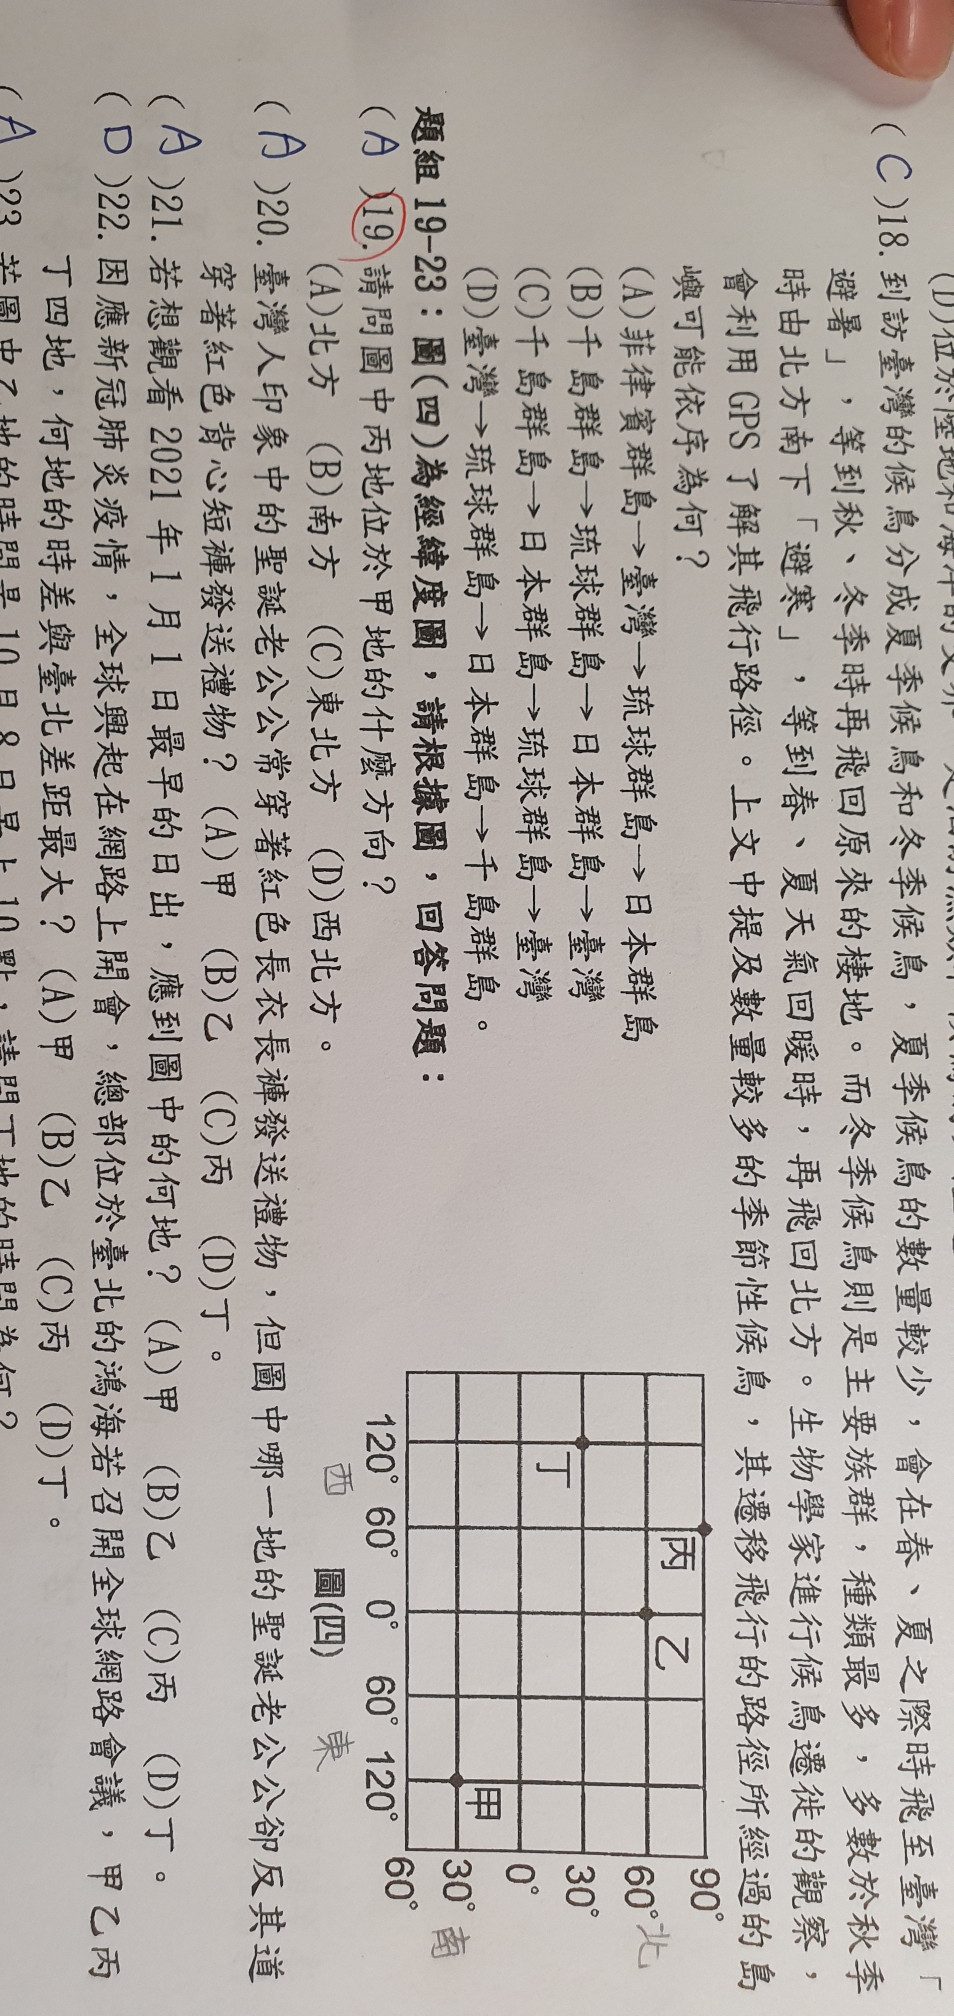 (D)位於陸地和海洋的交界
( C )18.到訪臺灣的候鳥分成夏季候鳥和冬季候鳥，夏季候鳥的數量較少，會在春、夏之際時飛至臺灣「
避暑」，等到秋、冬季時再飛回原來的棲地。而冬季候鳥則是主要族群，種類最多，多數於秋季
時由北方南下「避寒」，等到春、夏天氣回暖時，再飛回北方。生物學家進行候鳥遷徙的觀察，
會利用 GPS 了解其飛行路徑。上文中提及數量較多的季節性候鳥，其遷移飛行的路徑所經過的島
嶼可能依序為何？
(A)菲律賓群島→臺灣→琉球群島→日本群島
(B)千島群島→琉球群島→日本群島→臺灣
(C)千島群島→日本群島→琉球群島→臺灣
(D)臺灣→琉球群島→日本群島→千島群島。
題組 19-23：圖(四)為經緯度圖，請根據圖，回答問題：
( A )19.請問圖中丙地位於甲地的什麼方向？
(A)北方 (B)南方 (C)東北方 (D)西北方。
( A )20.臺灣人印象中的聖誕老公公常穿著紅色長衣長褲發送禮物，但圖中哪一地的聖誕老公公卻反其道
穿著紅色背心短褲發送禮物？(A)甲 (B)乙 (C)丙 (D)丁。
( A )21.若想觀看 2021 年 1 月 1 日最早的日出，應到圖中的何地？(A)甲 (B)乙 (C)丙 (D)丁。
( D )22.因應新冠肺炎疫情，全球興起在網路上開會，總部位於臺北的鴻海若召開全球網路會議，甲乙丙
丁四地，何地的時差與臺北差距最大？(A)甲 (B)乙 (C)丙 (D)丁。
( A )23.若圖中乙地的時間是 10 月 8 日早上 10 點，請問丁地的時間為何？
90°
丙
60° 北
乙
30°
丁
0°
甲
30° 南
60°
120° 60° 0° 60° 120°
西 東
圖(四)